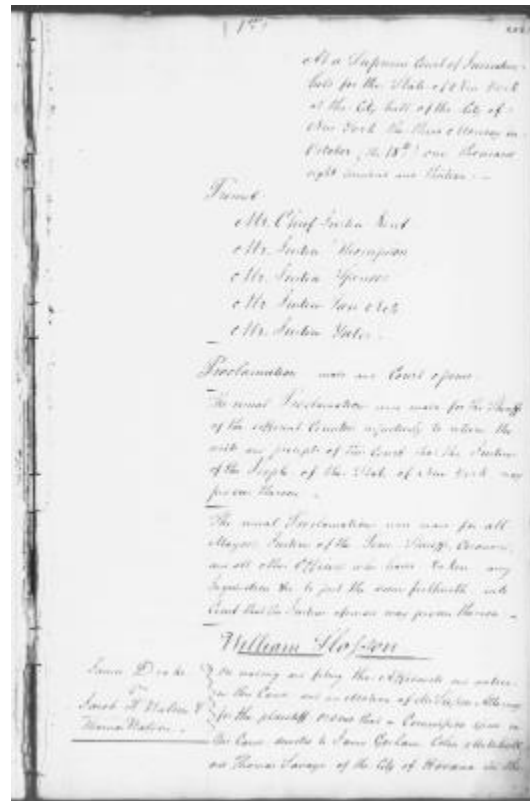 At a Supreme Court of Judicature
held for the State of New York
at the City hall of the City of
New York the third Monday in
October (the 18th) one thousand
eight hundred and thirteen. -
Present
Mr. Chief Justice Kent
Mr. Justice Thompson
Mr. Justice Spencer
Mr. Justice Van Ness
Mr. Justice Yates.
Proclamation made and Court opened
The usual Proclamation was made for the Sheriffs
of the different Counties to return the
writs and precepts of this Court that the Justices
of the People of the State of New York may
proceed thereon.
The usual Proclamation was made for all
Mayors Justices of the Peace Sheriffs Coroners
and all other Officers who have taken any
Inquisitions to put the same forthwith into
Court that the Justices may proceed thereon -
William Slosson
James Drake
vs
Sarah Watson &
Thomas Watson.
On reading and filing the Affidavit and notice
in this Cause and on motion of Attorney
for the plaintiff ordered that a Commission issue in
this Cause directed to James
and Thomas Savage of the City of Havana in the